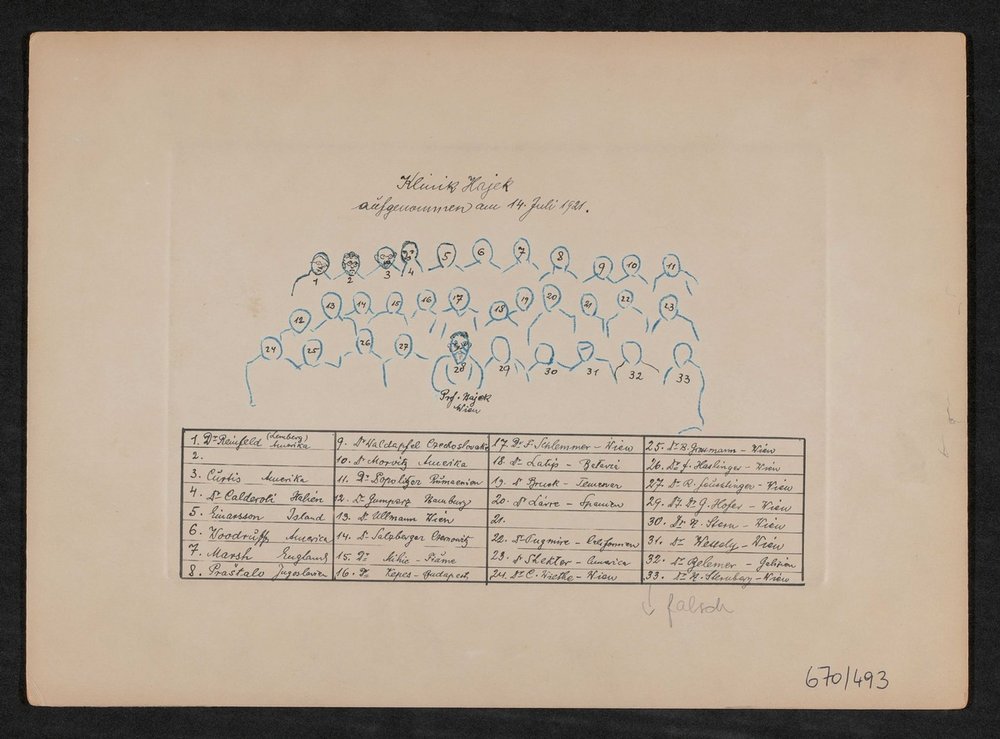 Klinik Hajek
aufgenommen am 14. Juli 1921.
1 2 3 4 5 6 7 8 9 10 11
12 13 14 15 16 17 18 19 20 21 22 23
24 25 26 27 28 29 30 31 32 33
Prof. Hajek
Wien
1. Dr Reinfeld (Lemberg) Amerika
2.
3. Curtis Amerika
4. Dr Calderoli Italien
5. Einarsson Island
6. Woodruff America
7. Marsh England
8. Praštalo Jugoslavien
9. Dr Waldapfel
10. Dr Morvitz Amerika
11. Dr Rumaenien
12. Dr Gumperz Hamburg
13. Dr Ullmann Wien
14. Dr Salzberger Czernovitz
15. Dr Mihic - Fiume
16. Dr Kepes - Budapest.
17. Dr F. Schlemmer - Wien
18. Dr
19. Dr Bruck - Temesvar
20. Dr - Spanien
21.
22. Dr Pugmire - Californien
23. Dr Shekter - America
24. Dr C. Wiethe - Wien
25. Dr B. Grossmann - Wien
26. Dr F. Haslinger - Wien
27. Dr - Wien
29. Dr G. Hofer - Wien
30. Dr H. Stern - Wien
31. Dr Wessely - Wien
32. Dr Belemer - Galizien
33. Dr H. Sternberg - Wien
↓ falsch
670/493